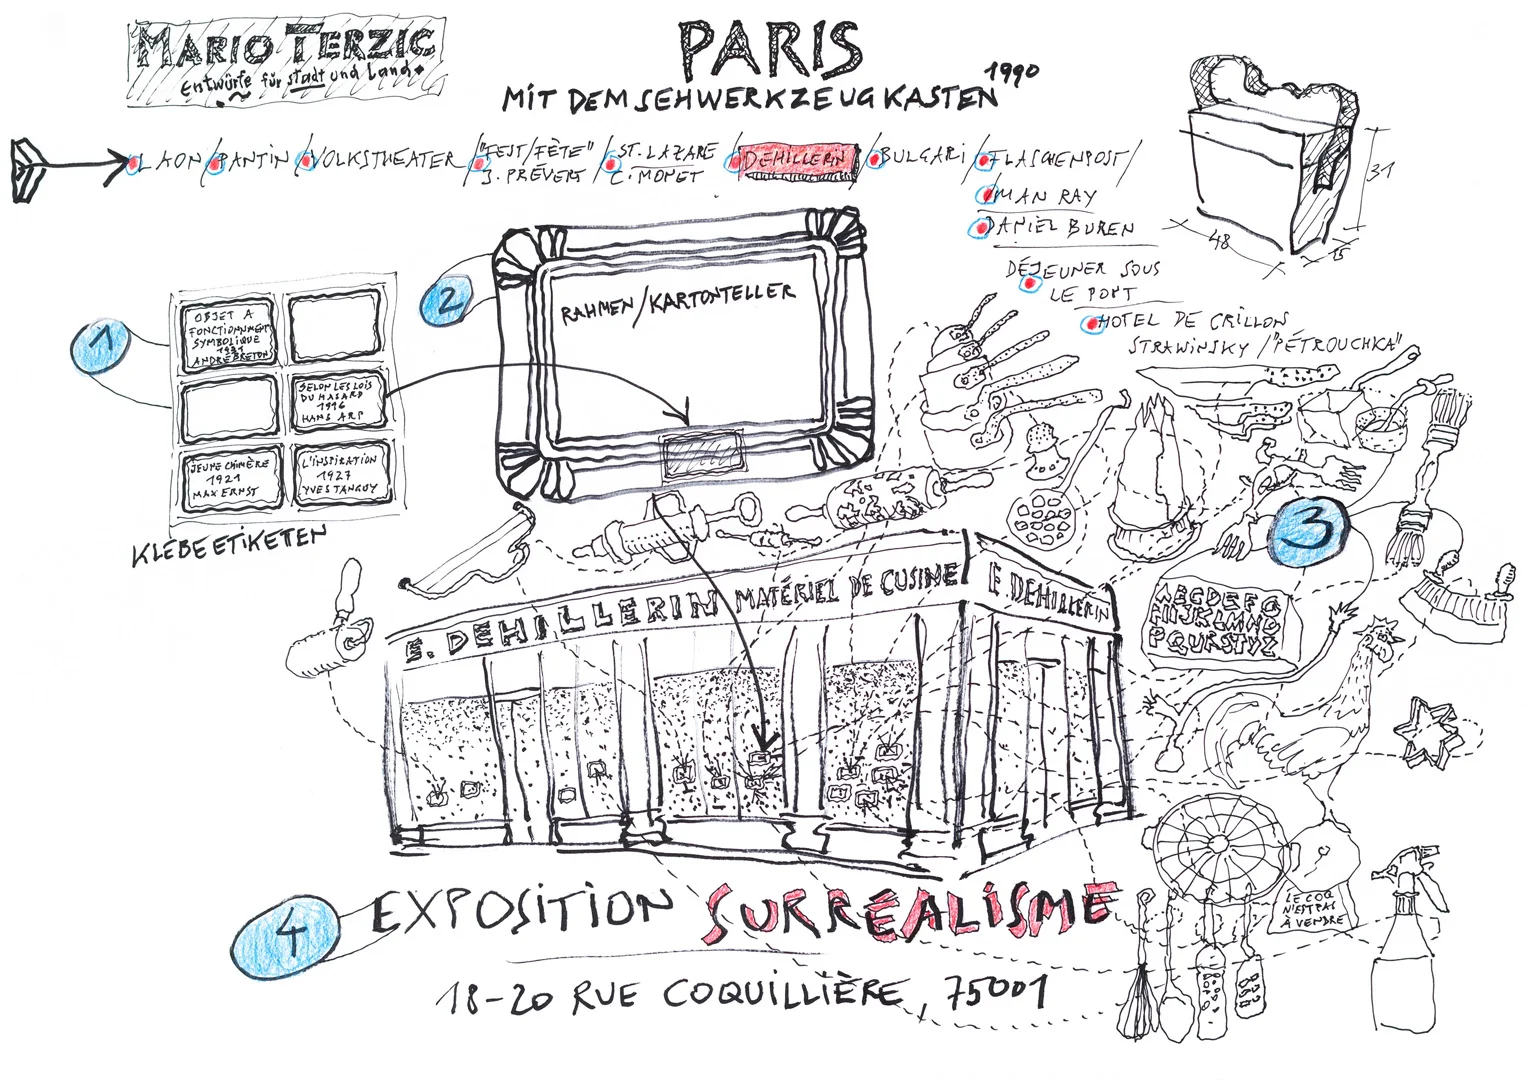 MARIO TERZIC
entwürfe für stadt und land
PARIS
1990
MIT DEM SEHWERKZEUGKASTEN
LAON / PANTIN / VOLKSTHEATER / "FEST/FÊTE" / ST. LAZARE / DEHILLERIN / BULGARI / FLASCHENPOST /
J. PRÉVERT / C. MONET
MAN RAY
DANIEL BUREN
DÉJEUNER SOUS
LE PONT
HOTEL DE CRILLON
STRAWINSKY / "PÉTROUCHKA"
31
48
15
1
OBJET A
FONCTIONNMENT
SYMBOLIQUE
1931
ANDRÉ BRETON
SELON LES LOIS
DU HASARD
1916
HANS ARP
JEUNE CHIMÈRE
1921
MAX ERNST
L'INSPIRATION
1927
YVES TANGUY
KLEBEETIKETEN
2
RAHMEN/KARTONTELLER
3
ABCDEFG
HIJKLMNO
PQURSTYZ
E. DEHILLERIN MATÉRIEL DE CUSINE E. DEHILLERIN
LE COQ
N'EST PAS
À VENDRE
4
EXPOSITION SURRÉALISME
18-20 RUE COQUILLIÈRE, 75001